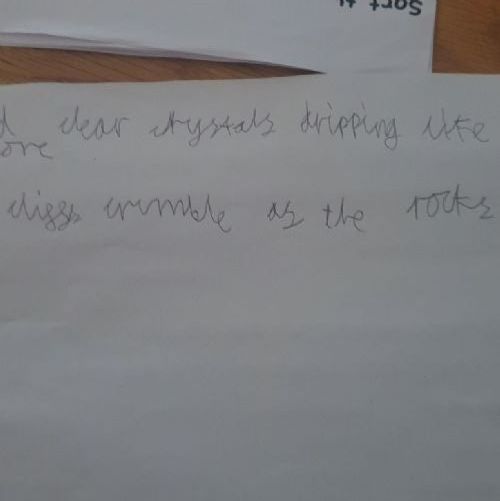 Sort it
clear crystals dripping like
ore
cliffs crumble as the rocks